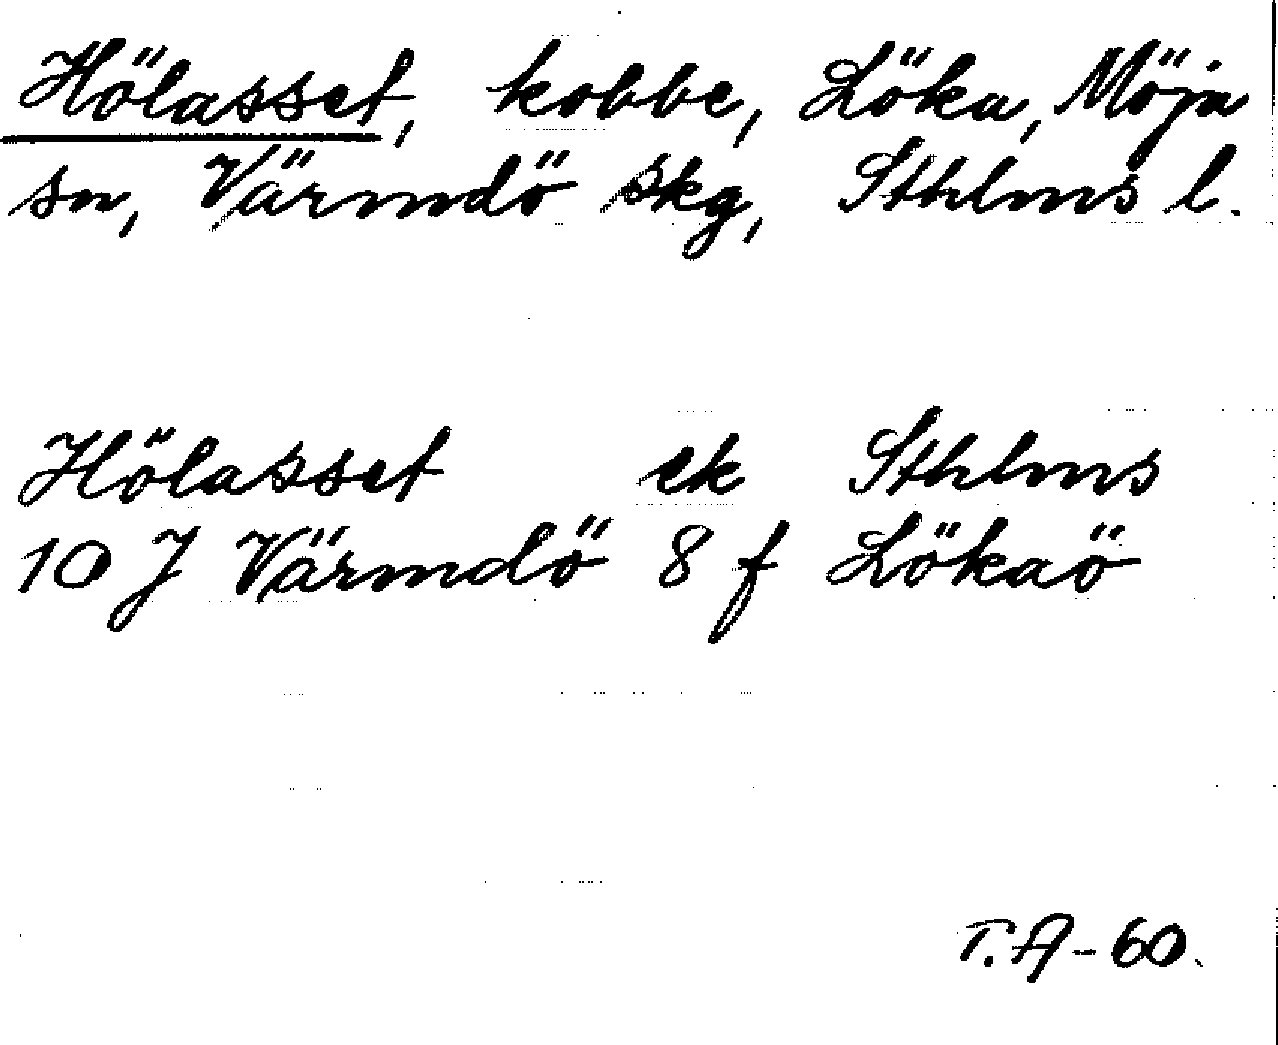 Hölasset, kobbe, Löka, Möja
sn, Värmdö skg, Sthlms l.
Hölasset ek Sthlms
10 J Värmdö 8 f Lökaö
T.A-60.